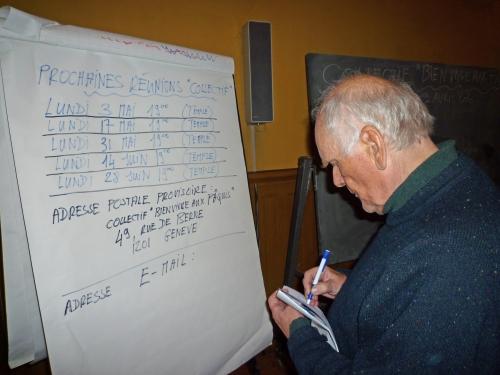 PROCHAINES RÉUNIONS "COLLECTIF"
LUNDI 3 MAI 19°° (TEMPLE)
LUNDI 17 MAI 19°° (TEMPLE)
LUNDI 31 MAI 19°° (TEMPLE)
LUNDI 14 JUIN 19°° (TEMPLE)
LUNDI 28 JUIN 19°° (TEMPLE)
ADRESSE POSTALE PROVISOIRE :
COLLECTIF "BIENVIVRE AUX PÂQUIS"
49, RUE DE BERNE
1201 GENEVE
ADRESSE E-MAIL :